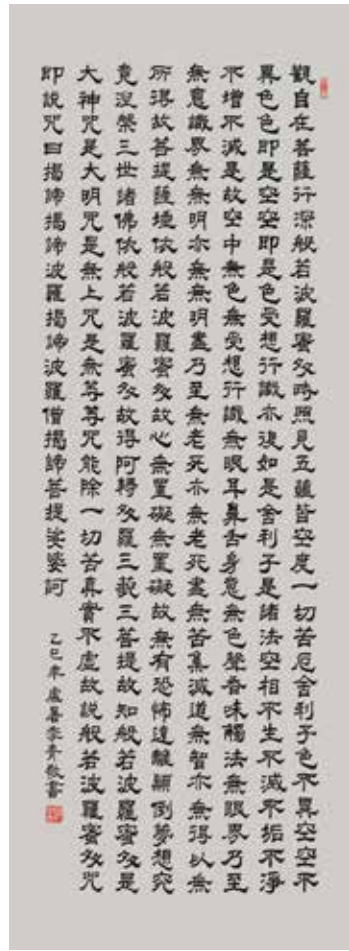 觀自在菩薩行深般若波羅蜜多時照見五蘊皆空度一切苦厄舍利子色不異空空不
異色色即是空空即是色受想行識亦復如是舍利子是諸法空相不生不滅不垢不淨
不增不減是故空中無色無受想行識無眼耳鼻舌身意無色聲香味觸法無眼界乃至
無意識界無無明亦無無明盡乃至無老死亦無老死盡無苦集滅道無智亦無得以無
所得故菩提薩埵依般若波羅蜜多故心無罣礙無罣礙故無有恐怖遠離顛倒夢想究
竟涅槃三世諸佛依般若波羅蜜多故得阿耨多羅三藐三菩提故知般若波羅蜜多是
大神咒是大明咒是無上咒是無等等咒能除一切苦真實不虛故說般若波羅蜜多咒
即說咒曰揭諦揭諦波羅揭諦波羅僧揭諦菩提娑婆訶
乙巳年處暑李青敬書